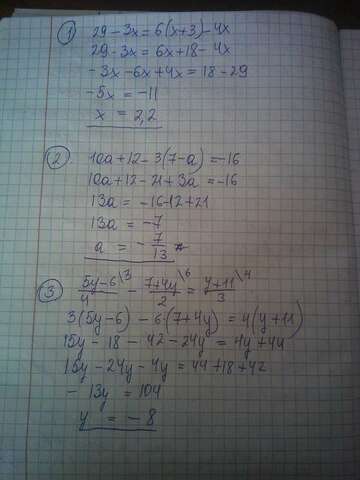 ① 29 - 3x = 6(x+3) - 4x
29 - 3x = 6x + 18 - 4x
- 3x - 6x + 4x = 18 - 29
- 5x = - 11
x = 2,2
② 10a + 12 - 3(7 - a) = -16
10a + 12 - 21 + 3a = -16
13a = -16 - 12 + 21
13a = -7
a = - 7/13
③ (5y-6)/4 \3 - (7+4y)/2 \6 = (y+11)/3 \4
3(5y-6) - 6·(7+4y) = 4(y+11)
15y - 18 - 42 - 24y = 4y + 44
15y - 24y - 4y = 44 + 18 + 42
- 13y = 104
y = - 8